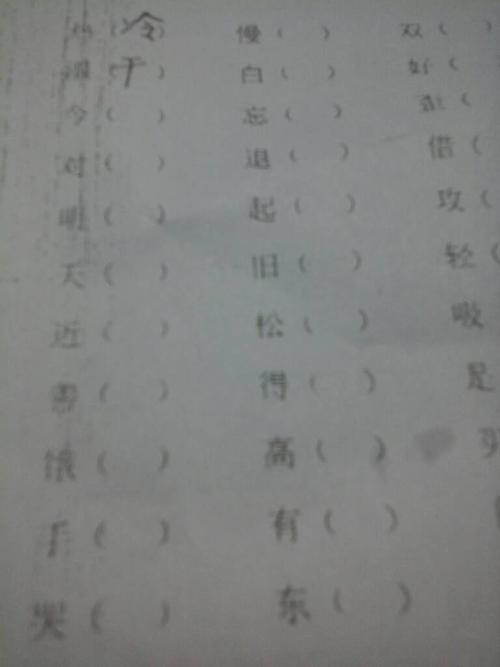 热（冷） 慢（ ） 双（ ）
湿（干） 白（ ） 好（
今（ ） 忘（ ） 歪（
对（ ） 退（ ） 借（
明（ ） 起（ ） 攻（
天（ ） 旧（ ） 轻（
近（ ） 松（ ） 吸
善（ ） 得（ ） 是
饿（ ） 高（ ）
手（ ） 有（ ）
哭（ ） 东（ ）